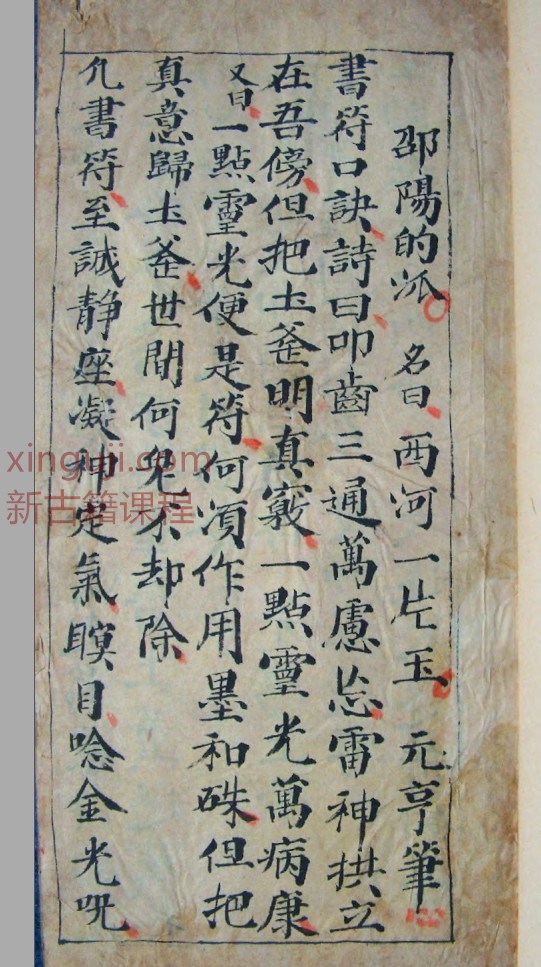 邵陽的派 名曰西河一片玉 元亨筆
書符口訣詩曰叩齒三通萬慮忘雷神拱立
在吾傍但把土釜明真竅一點靈光萬病康
又曰一點靈光便是符何須作用墨和硃但把
真意歸土釜世間何鬼不却除
凢書符至誠静座凝神定氣瞑目唸金光呪
xinguji.com
新古籍课程